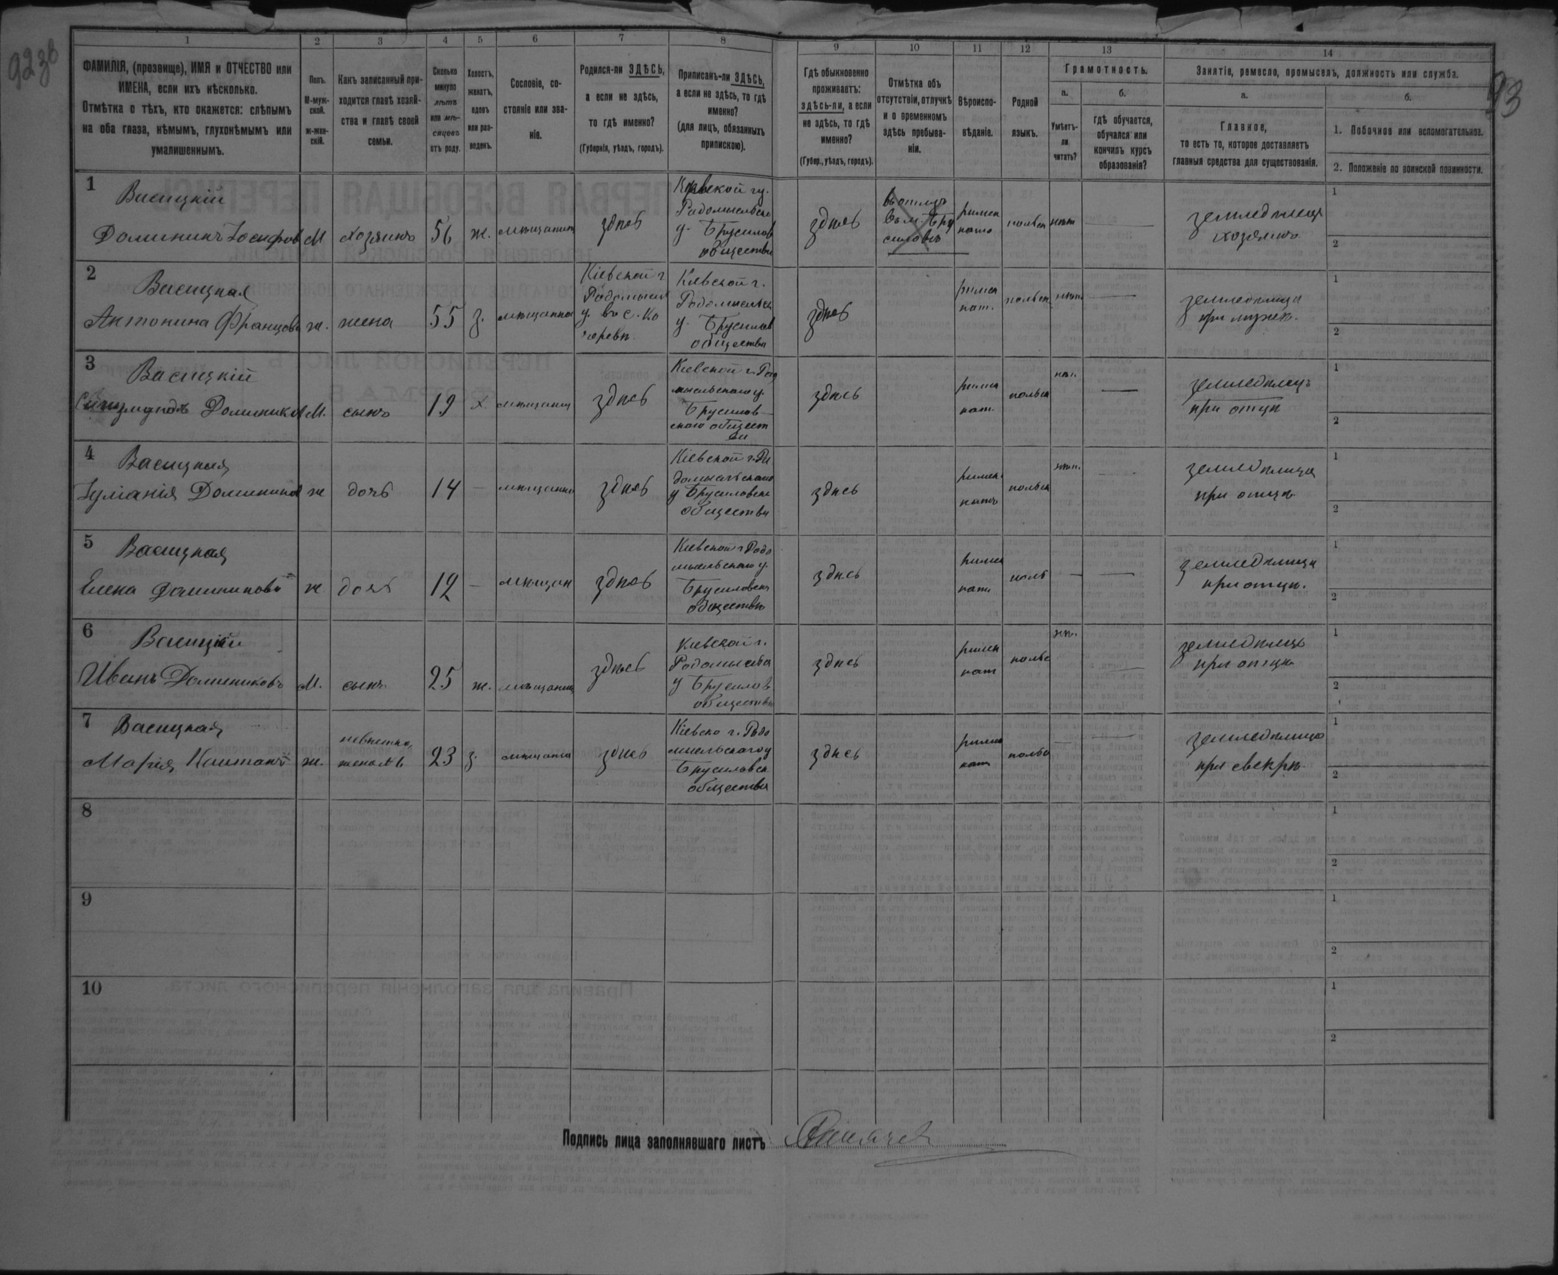 923б
93
1 2 3 4 5 6 7 8 9 10 11 12 13 14
ФАМИЛІЯ, (прозвище), ИМЯ и ОТЧЕСТВО или
ИМЕНА, если ихъ нѣсколько.
Отмѣтка о тѣхъ, кто окажется: слѣпымъ
на оба глаза, нѣмымъ, глухонѣмымъ или
умалишеннымъ.
Полъ.
М-муж-
ской.
ж-жен-
скій.
Какъ записанный при-
ходится главѣ хозяй-
ства и главѣ своей
семьи.
Сколько
минуло
лѣтъ
или мѣ-
сяцевъ
отъ роду.
Холостъ,
женатъ,
вдовъ
или раз-
веденъ.
Сословіе, со-
стояніе или зва-
ніе.
Родился-ли ЗДѢСЬ,
а если не здѣсь,
то гдѣ именно?
(Губернія, уѣздъ, городъ).
Приписанъ-ли ЗДѢСЬ,
а если не здѣсь, то гдѣ
именно?
(для лицъ, обязанныхъ
припискою).
Гдѣ обыкновенно
проживаетъ:
здѣсь-ли, а если
не здѣсь, то гдѣ
именно?
(Губер., уѣздъ, городъ).
Отмѣтка объ
отсутствіи, отлучкѣ
и о временномъ
здѣсь пребыва-
ніи.
Вѣроиспо-
вѣданіе.
Родной
языкъ.
Грамотность.
а.
Умѣетъ-
ли
читать?
б.
гдѣ обучается,
обучался или
кончилъ курсъ
образованія?
Занятіе, ремесло, промыселъ, должность или служба.
а.
Главное,
то есть то, которое доставляетъ
главныя средства для существованія.
б.
1. Побочное или вспомогательное.
2. Положеніе по воинской повинности.
1
Васицкій
Доминикъ Іосифов М хозяинъ 56 ж. мѣщанинъ здѣсь
Кіевской гу.
Радомысльско
у. Брусилов
общества
здѣсь
римск
като
польск
нѣт
земледѣлецъ
хозяинъ
1
2
2
Васицкая
Антонина Францова ж. жена 55 з. мѣщанка
Кіевской г
Радомысл
у. въ с. Ко
черевк.
Кіевской г.
Радомысльск
у. Брусилов
общества
здѣсь
римск
кат.
польск
нѣтъ
земледѣлица
при мужѣ.
1
2
3
Васицкій
Сигизмундъ Домиников М. сынъ 19 х мѣщанинъ здѣсь
Кіевской г. Радо
мысльского у.
Брусилов-
ского общест
ва
здѣсь
римск
кат.
польск
нѣт.
земледѣлецъ
при отцѣ
1
2
4
Васицкая
Іуліанія Домиников ж дочь 14 — мѣщанка здѣсь
Кіевской г. Ра
домысльского
у Брусиловско
общества
здѣсь
римск.
католъ
польск
нѣт.
земледѣлица
при отцѣ
1
2
5
Васицкая
Елена Доминикова ж дочь 12 — мѣщан здѣсь
Кіевской г Радо
мысльского у.
Брусиловско
общества
здѣсь
римск
кат.
польс
земледѣлица
при отцѣ.
1
2
6
Васицкій
Иванъ Доминиковъ М. сынъ 25 ж. мѣщанинъ здѣсь
Кіевской г.
Радомысльс
у Брусилов
общества
здѣсь
римск
кат
польс
нѣт.
земледѣлецъ
при отцѣ
1
2
7
Васицкая
Марія ж. невѣстка 23 з. мѣщанка здѣсь
Кіевско г. Радо
мысльского у
Брусиловско
общества
здѣсь
римск
кат
польс
земледѣлица
при свекрѣ.
1
2
8
1
2
9
1
2
10
1
2
Подпись лица заполнявшаго листъ